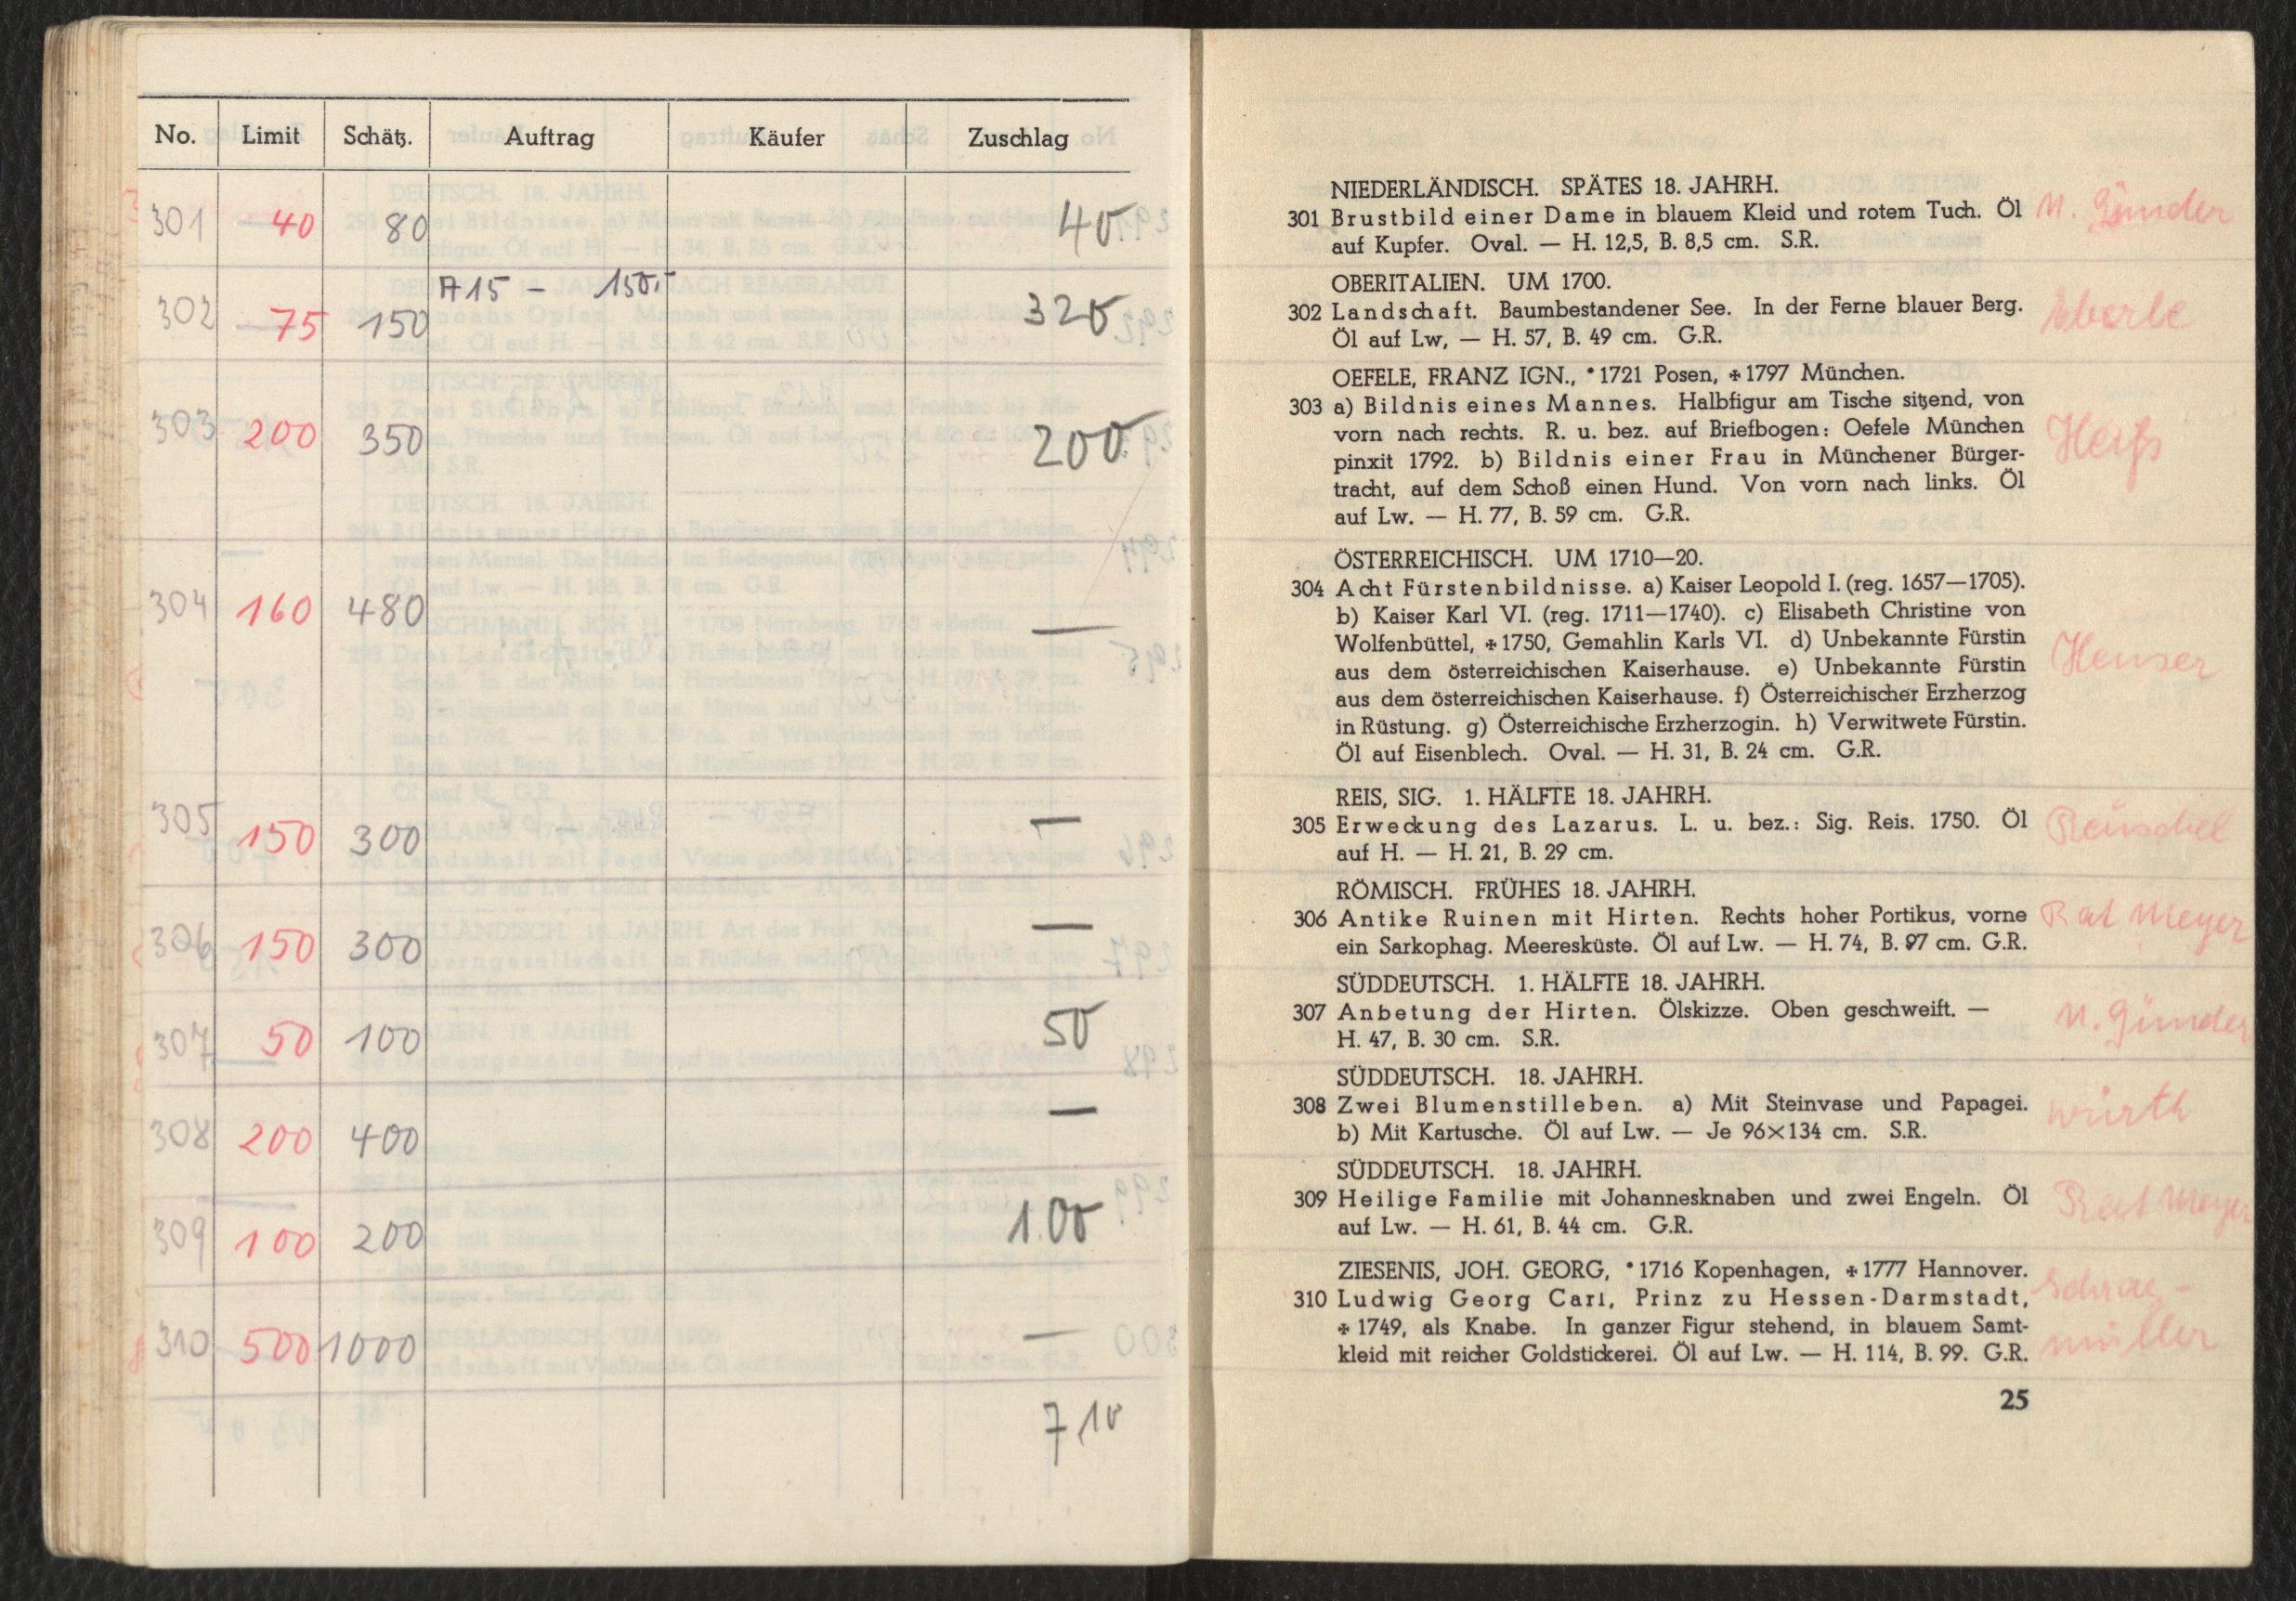 No. Limit Schätz. Auftrag Käufer Zuschlag
301 40 80 40
A15 – 150.-
302 75 150 320
303 200 350 200
304 160 480 —
305 150 300 —
306 150 300 —
307 50 100 50
308 200 400 —
309 100 200 100
310 500 1000 —
710
NIEDERLÄNDISCH. SPÄTES 18. JAHRH.
301 Brustbild einer Dame in blauem Kleid und rotem Tuch. Öl
auf Kupfer. Oval. — H. 12,5, B. 8,5 cm. S.R.
M. Günder
OBERITALIEN. UM 1700.
302 Landschaft. Baumbestandener See. In der Ferne blauer Berg.
Öl auf Lw, — H. 57, B. 49 cm. G.R.
Eberle
OEFELE, FRANZ IGN., *1721 Posen, ✠1797 München.
303 a) Bildnis eines Mannes. Halbfigur am Tische sitzend, von
vorn nach rechts. R. u. bez. auf Briefbogen: Oefele München
pinxit 1792. b) Bildnis einer Frau in Münchener Bürger-
tracht, auf dem Schoß einen Hund. Von vorn nach links. Öl
auf Lw. — H. 77, B. 59 cm. G.R.
Heiß
ÖSTERREICHISCH. UM 1710—20.
304 Acht Fürstenbildnisse. a) Kaiser Leopold I. (reg. 1657—1705).
b) Kaiser Karl VI. (reg. 1711—1740). c) Elisabeth Christine von
Wolfenbüttel, ✠1750, Gemahlin Karls VI. d) Unbekannte Fürstin
aus dem österreichischen Kaiserhause. e) Unbekannte Fürstin
aus dem österreichischen Kaiserhause. f) Österreichischer Erzherzog
in Rüstung. g) Österreichische Erzherzogin. h) Verwitwete Fürstin.
Öl auf Eisenblech. Oval. — H. 31, B. 24 cm. G.R.
Heuser
REIS, SIG. 1. HÄLFTE 18. JAHRH.
305 Erweckung des Lazarus. L. u. bez.: Sig. Reis. 1750. Öl
auf H. — H. 21, B. 29 cm.
Reuschel
RÖMISCH. FRÜHES 18. JAHRH.
306 Antike Ruinen mit Hirten. Rechts hoher Portikus, vorne
ein Sarkophag. Meeresküste. Öl auf Lw. — H. 74, B. 97 cm. G.R.
Rat Meyer
SÜDDEUTSCH. 1. HÄLFTE 18. JAHRH.
307 Anbetung der Hirten. Ölskizze. Oben geschweift. —
H. 47, B. 30 cm. S.R.
M. Günder
SÜDDEUTSCH. 18. JAHRH.
308 Zwei Blumenstilleben. a) Mit Steinvase und Papagei.
b) Mit Kartusche. Öl auf Lw. — Je 96×134 cm. S.R.
Würth
SÜDDEUTSCH. 18. JAHRH.
309 Heilige Familie mit Johannesknaben und zwei Engeln. Öl
auf Lw. — H. 61, B. 44 cm. G.R.
Rat Meyer
ZIESENIS, JOH. GEORG, *1716 Kopenhagen, ✠1777 Hannover.
310 Ludwig Georg Carl, Prinz zu Hessen-Darmstadt,
✠1749, als Knabe. In ganzer Figur stehend, in blauem Samt-
kleid mit reicher Goldstickerei. Öl auf Lw. — H. 114, B. 99. G.R.
müller
25